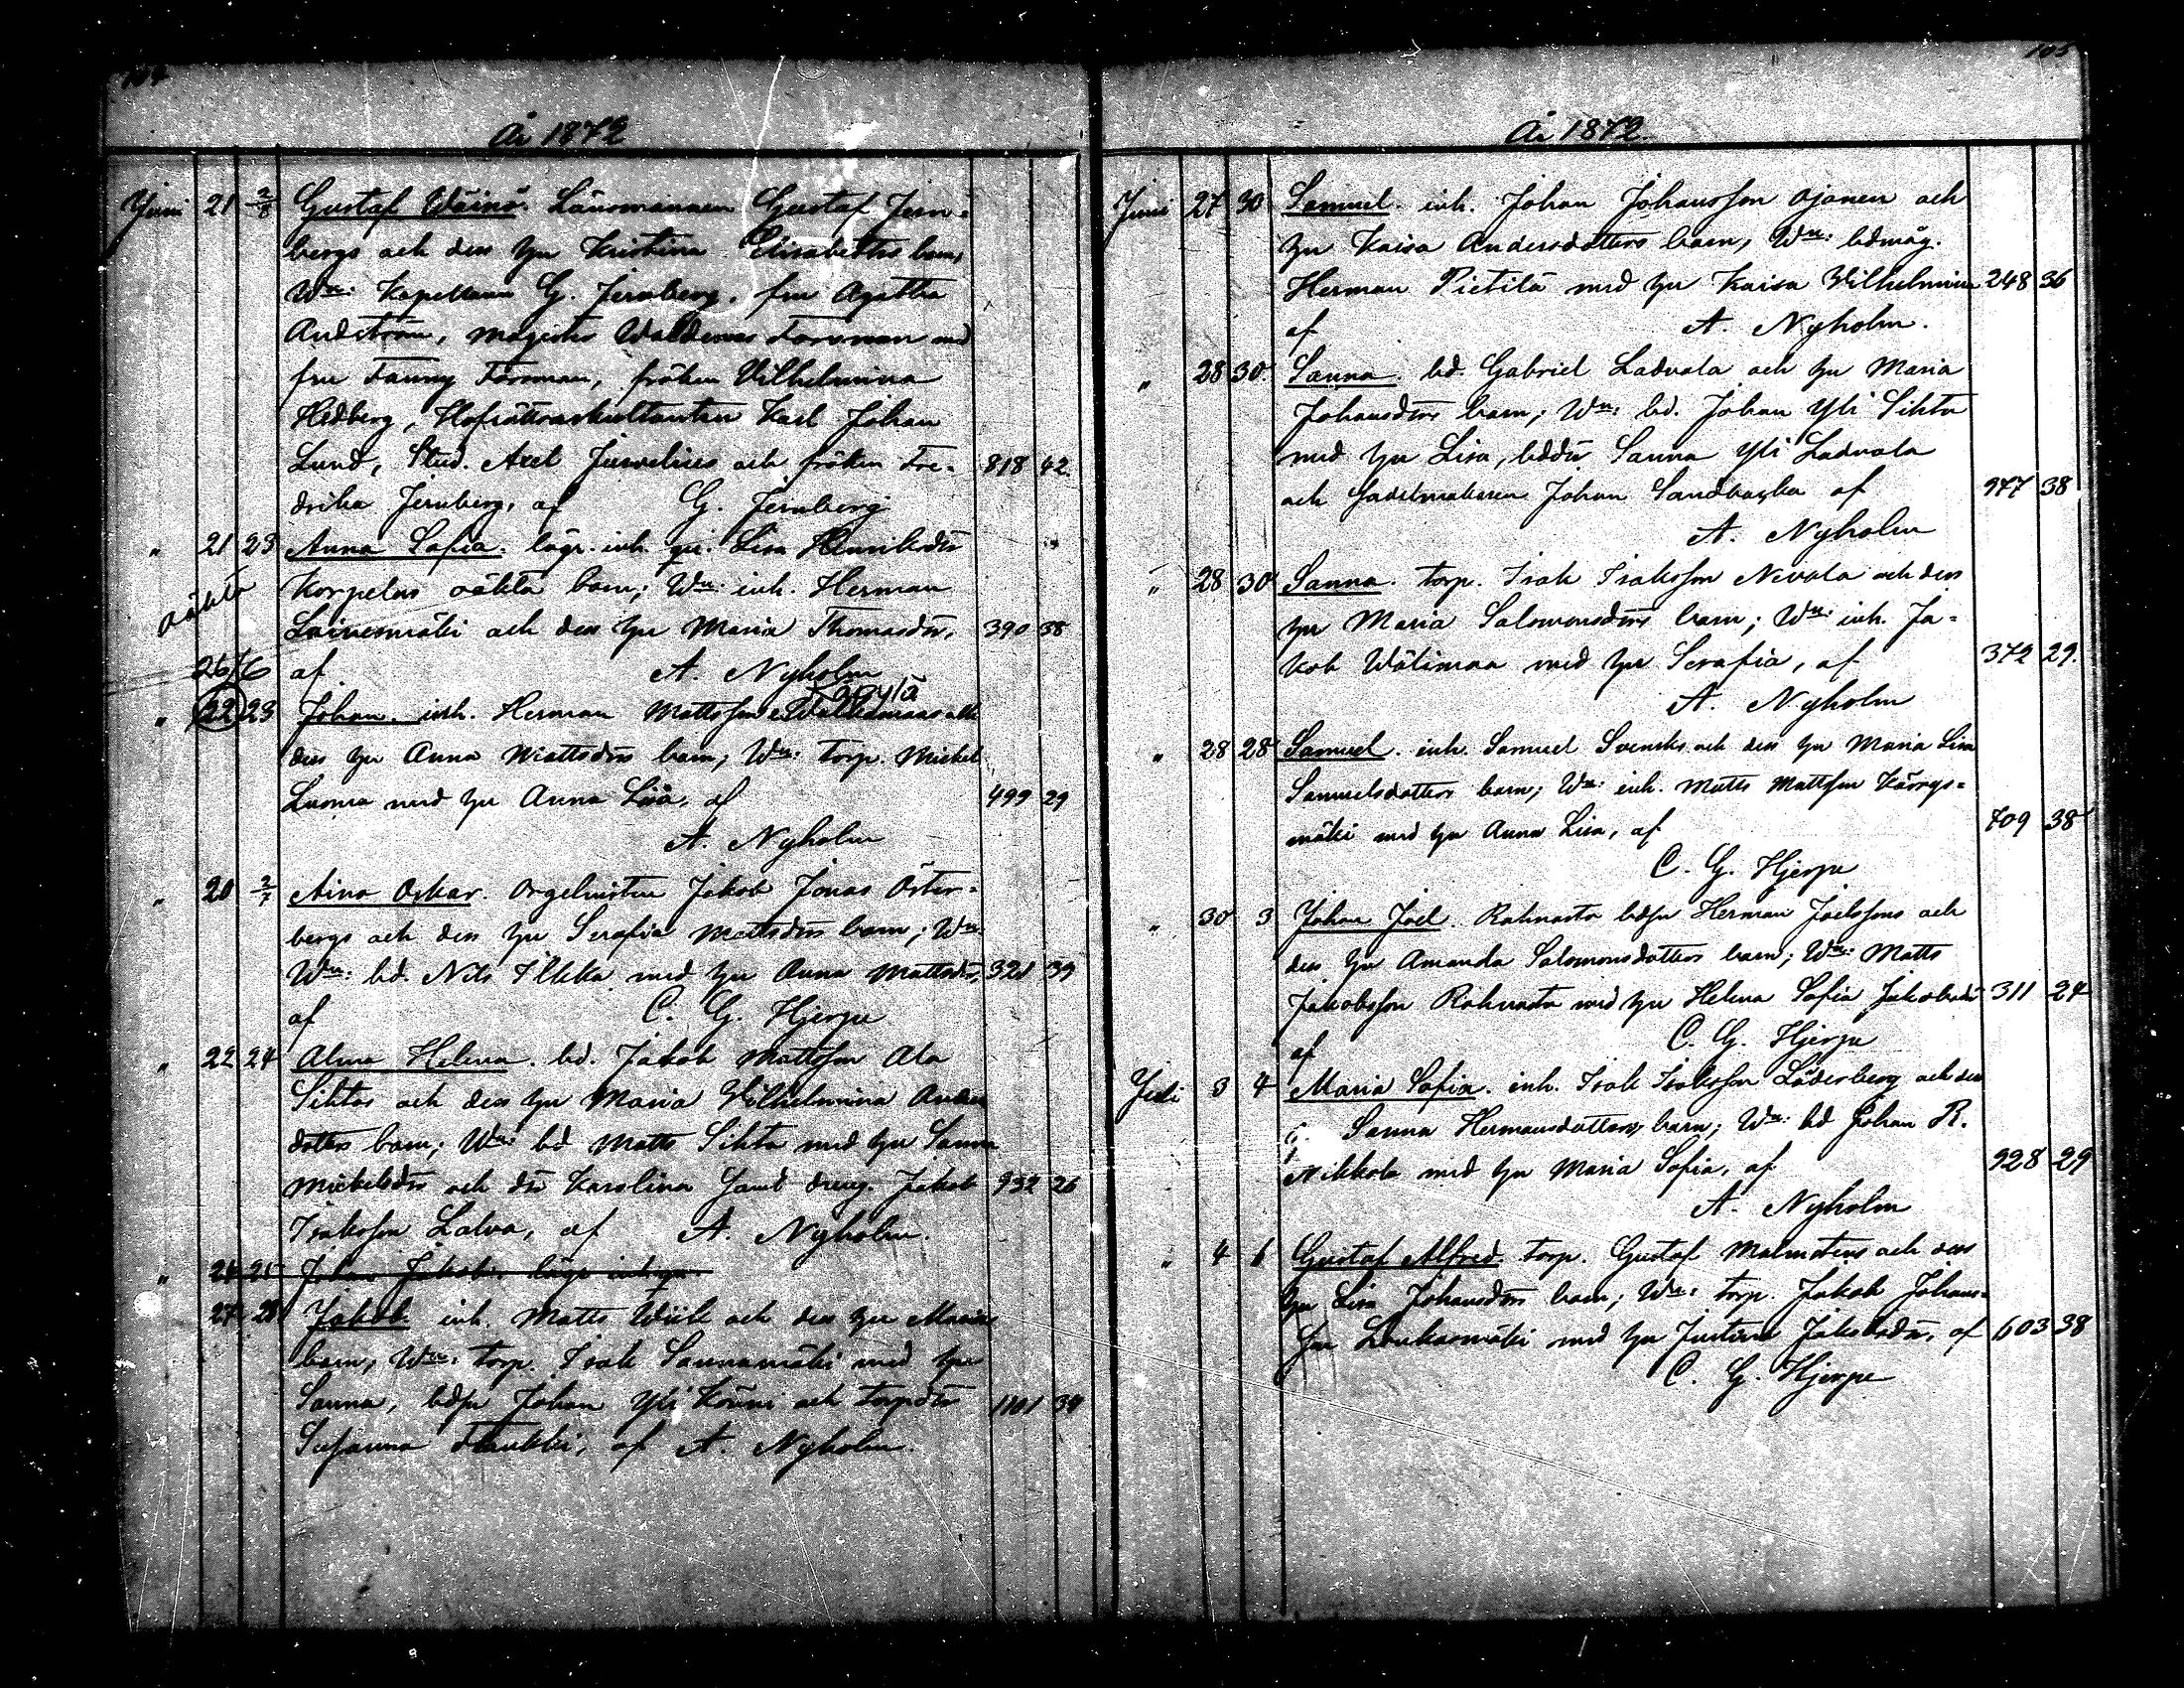 104
År 1872
Juni 21 2/8 Gustaf Wäinö. Länsmannen Gustaf Jern-
bergs och dess hu Kristina Elisabeths barn,
Wn: Kapellanen G. Jernberg, fru Agatha
magister Waldemar Forsman med
fru Fanny Forsman, fröken Vilhelmina
Hedberg, Hofrättsauskultanten Karl Johan
Lund, Stud. Axel Juvelius och fröken Fre- 818 42.
drika Jernberg, af G. Jernberg
" 21 23 Anna Sofia. inh. Lisa Henriksdr
oäkta Korpelas oäkta barn; Wn: inh. Herman
Loivesmäki och dess hu Maria Thomasdr, 390 38
26/6 af A. Nyholm
Töysä
" 22 23 Johan. inh. Herman Mattsson och
dess hu Anna Mattsdrs barn; Wn: torp. Mickel
Luoma med hu Anna Lisa, af 499 29
A. Nyholm
" 20 2/7 Aino Oskar. Orgelnisten Jakob Jonas Öster-
bergs och dess hu Serafia Mattsdrs barn; Wn
Wn: bd. Nils Ilkka med hu Anna Mattsdr, 321 39
af C. G. Hjerpe
" 22 24 Alma Helena. bd. Jakob Mattsson Ala
Sihtos och dess hu Maria Vilhelmina Anders
dotters barn; Wn: bd Matts Sihto med hu Sanna
Mickelsdr och dr Karolina samt dreng. Jakob 932 26
Isaksson Lalva, af A. Nyholm.
" 24 25 Johan Jakob.
27 28 Jakob. inh. Matts Wiik och dess hu Marias
barn; Wn: torp. Isak Saunamäki med hu
Sanna, bdsn Johan Yli Köuni och torpdr 1101 39
Susanna af A. Nyholm.
105
År 1872.
Juni 27 30 Samuel. inh. Johan Johansson Ojanen och
hu Kaisa Andersdotters barn, Wn: bdmåg.
Herman Pietilä med hu Kaisa Vilhelmina 248 36
af A. Nyholm.
" 28 30. Sanna. bd. Gabriel Ladvala och hu Maria
Johansdrs barn; Wn: bd. Johan Yli Sihto
med hu Lisa, bddr Sanna Yli Ladvala
och sadelmakaren Johan Sandbacka af 977 38
A. Nyholm
" 28 30 Sanna. torp. Isak Isaksson Nevala och dess
hu Maria Salomonsdrs barn; Wn: inh. Ja-
kob Wälimaa med hu Serafia, af 372 29.
A. Nyholm
" 28 28 Samuel. inh. Samuel Svensks och dess hu Maria Lisa
Samuelsdotters barn; Wn: inh. Matts Mattsson Kärrys-
mäki med hu Anna Lisa, af 709 38
C. G. Hjerpe
" 30 3 Johan Joel. Rahnasto bdsn Herman Joelssons och
dess hu Amanda Salomonsdotters barn; Wn: Matts
Jakobsson Rahnasto med hu Helena Sofia Jakobsdr 311 24
af C. G. Hjerpe
Juli 3 4 Maria Sofia. inh. Isak Isaksson Söderberg och dess
h. Sanna Hermansdotters barn; Wn: bd Johan R.
Nikkola med hu Maria Sofia, af 928 29
A. Nyholm
" 4 6 Gustaf Alfred. torp. Gustaf Malmstens och dess
hu Lisa Johansdrs barn; Wn: torp. Jakob Johans-
son Loukasmäki med hu Justina Jakobsdr, af 603 38
C. G. Hjerpe